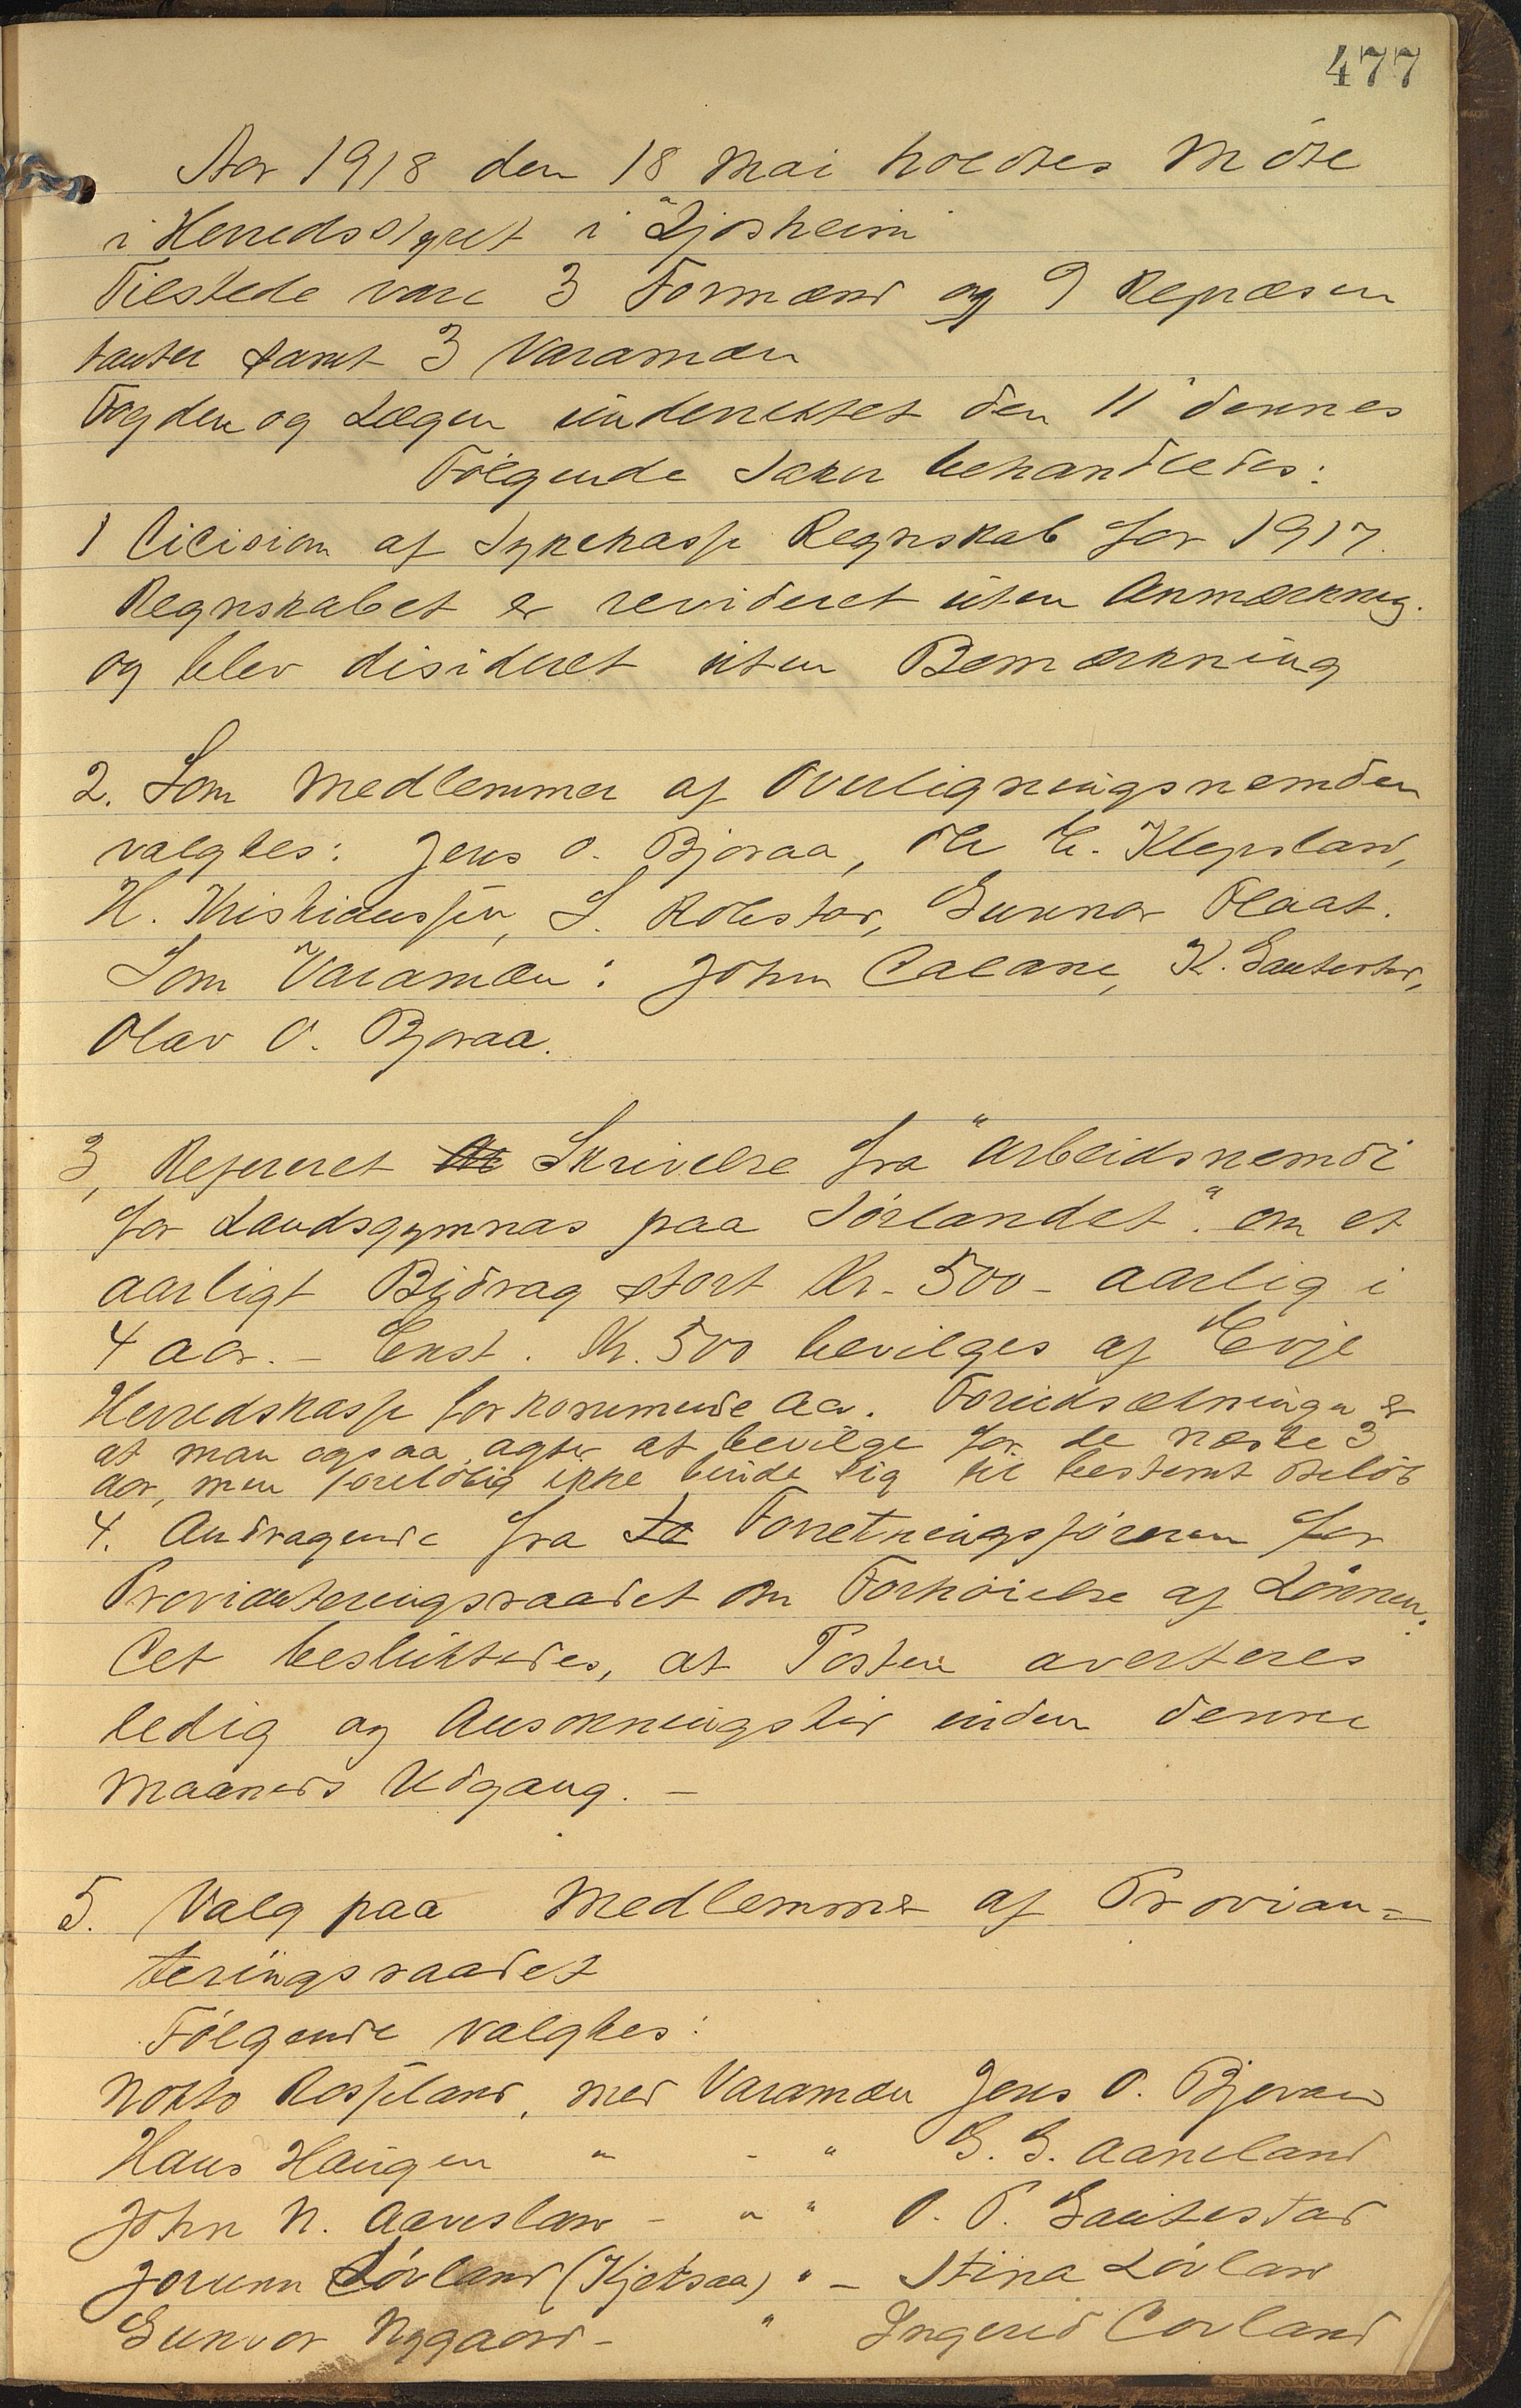 477
Aar 1918 den 18 Mai holdtes Møte
i Herredsstyret i "Ljosheim
Tilstede vare 3 Formænd og 9 Repræsen
tanter samt 3 Varamæn
Fogden og Lægen underrettet den 11' dennes
Følgende Saker behandledes:
1 Dicision af Sykekasse Regnskab for 1917.
Regnskabet er revideret uten Anmærkning.
og blev disideret uten Bemærkning
2. Som Medlemmer af Overligningsnemden
valgtes: Jens O. Bjoraa, Ole E. Klepsland,
H. Kristiansen, S. Rolstad, Gunnar Flaat.
Som Varamæn: John Dalane, K. Gautestad,
Olav O. Bjoraa.
3, Refereret Skrivelse fra "Arbeidsnemdi
for Landsgymnas paa Sørlandet". om et
aarligt Bidrag stort Kr. 500 - aarlig i
4 aar. - Enst. Kr. 500 bevilges af Evje
Herredskasse for kommende Aar. Forudsætningen er
at man ogsaa agter at bevilge for de næste 3
aar, men foreløbig ikke binde sig til bestemt Beløb
4. Andragende fra Forretningsføreren for
Provianteringsraadet om Forhøielse af Lønnen.
Det besluttedes, at Posten averteres
ledig og Ansøkningstid inden denne
Maaneds Udgang. -
5. Valg paa Medlemmer af Provian=
teringsraadet
Følgende valgtes:
Notto Rosseland, med Varamæn Jens O. Bjoraa
Hans Haugen " - " G. G. Aaneland
John N. Aaneslan - " " O. P. Gautestad
Jorunn Løvland (Kjetsaa) " - Stina Løvland
Gunvor Nygaard - " Ingerid Dovland